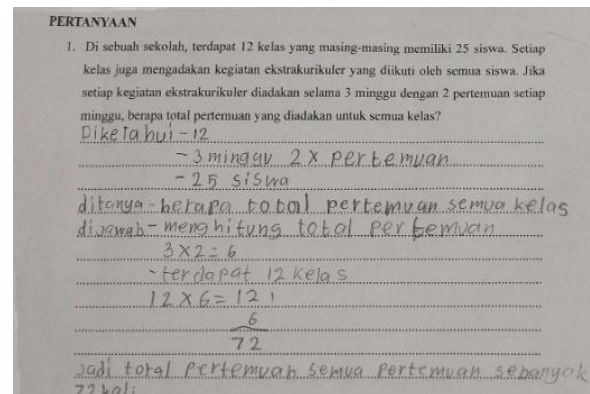 PERTANYAAN
1. Di sebuah sekolah, terdapat 12 kelas yang masing-masing memiliki 25 siswa. Setiap
kelas juga mengadakan kegiatan ekstrakurikuler yang diikuti oleh semua siswa. Jika
setiap kegiatan ekstrakurikuler diadakan selama 3 minggu dengan 2 pertemuan setiap
minggu, berapa total pertemuan yang diadakan untuk semua kelas?
Diketahui - 12
- 3 minggu 2 x pertemuan
- 25 siswa
ditanya - berapa total pertemuan semua kelas
dijawab - menghitung total pertemuan
3 x 2 = 6
- terdapat 12 kelas
12 x 6 = 12
6
72
Jadi total pertemuan semua pertemuan sebanyak
72 kali